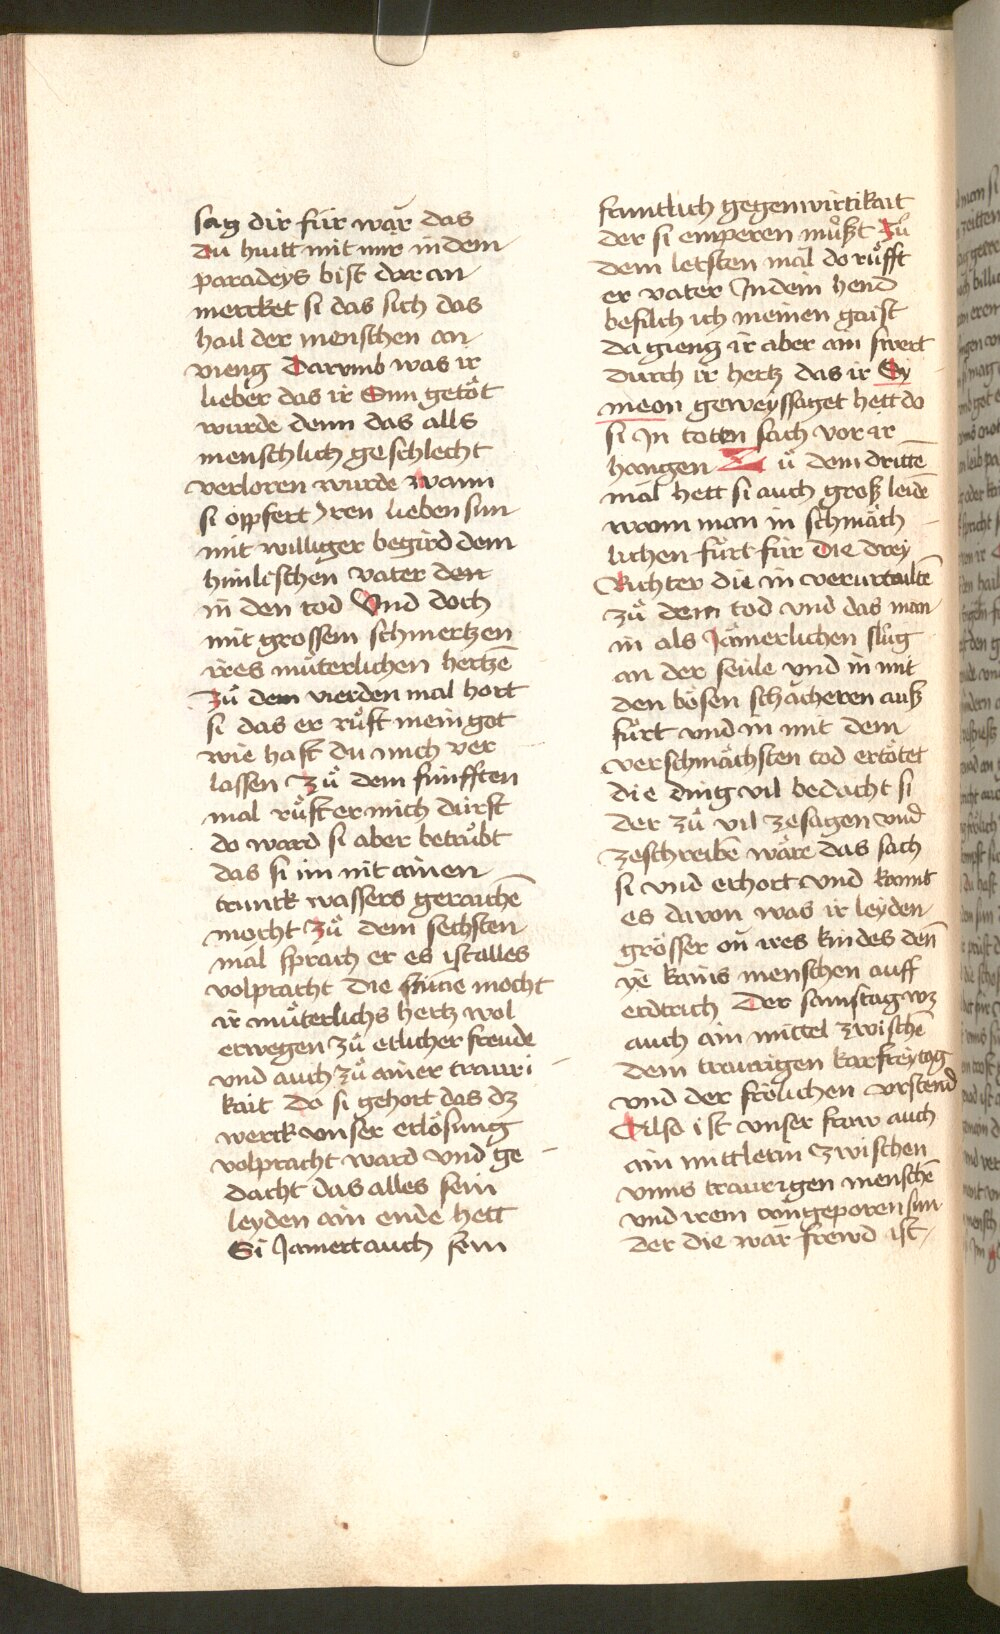 sag dir für war das
du hütt mit mir in dem
paradeys bist dar an
mercket si das sich das
hail der menschen an
vieng Darumb was ir
lieber das ir Sun getöt
wurde denn das alls
menschlich geschlecht
verloren wurde wann
si opffert yren lieben sun
mit williger begird dem
himlischen vater den
in den tod Vnd doch
mit grossem schmertzen
ires müterlichen hertzē
Zů dem vierden mal hort
si das er růft mein got
wie hast du mich ver
lassen Zů dem fünfften
mal růft er mich dürst
do ward si aber betrůbt
das si im nit ainen
trunck wassers geraichē
mocht Zů dem sechsten
mal sprach er es ist alles
volpracht Die stime mocht
ir můterlichs hertz wol
erwegen zů etlicher freude
vnd auch zů ainer trauri
kait Do si gehort das dz
werck vnser erlösung
volpracht ward vnd ge
dacht das alles sein
leyden ain ende hett
Si Jamert auch sein
fruntlich gegenwirtikait
der si emperen můßt Zů
dem letsten mal do růfft
er vater In dein hend
befilch ich meinen gaist
da gieng ir aber ain swert
durch ir hertz das ir Sy
meon geweyssaget hett do
si In totten sach vor ir
hangen Zů dem drittē
mal hett si auch groß leidē
wann man in schmäch
lichen fürt für die drey
Richter die in verurtailtē
zů dem tod vnd das man
in als Jämerlichen slůg
an der seüle vnd in mit
den bösen schacheren auß
fůrt vnd in mit dem
verschmächsten tod ertötet
die ding vil bedacht si
der zů vil ze sagen vnd
ze schreibē wäre das sach
si vnd erhort vnd kombt
es davon was ir leyden
grösser on ires kindes den̄
ye kains menschen auff
erdtrich Der samstag wz
auch ain mittel zwischē
dem traurigen karfreytag
vnd der frölichen vrstend
Also ist vnser fraw auch
ain mittlerin zwischen
vnns traurigen menschē
vnd irem aingeporen sun
der die war frewd ist